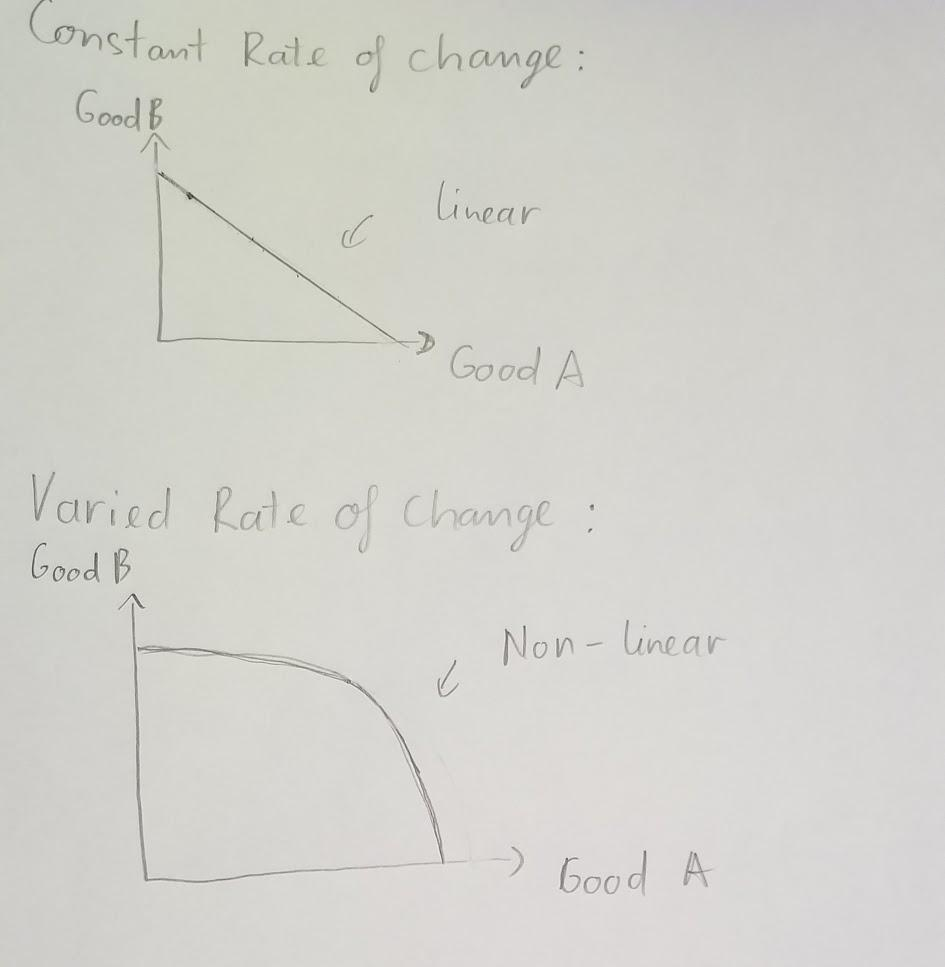 Constant Rate of change:
Good B
linear
Good A
Varied Rate of Change:
Good B
Non-linear
Good A